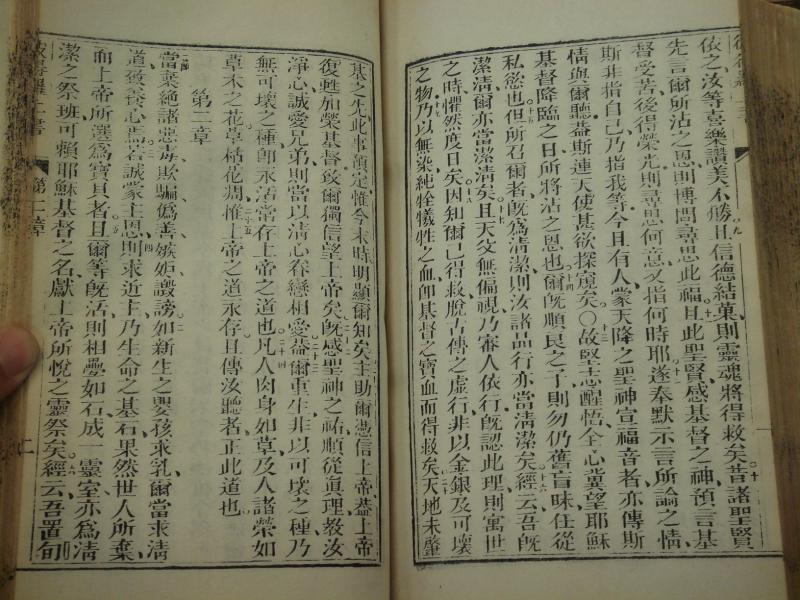 依之汝等喜樂讚美不勝且信德結菓則靈魂將得救矣昔諸聖賢
先言爾所沾之恩則博問尋思此福且此聖賢感基督之神預言基
督受苦後得榮光則尋思何意又指何時耶遂奉默示言所論之情
斯非指自己乃指我等今且有人蒙天降之聖神宣福音者亦傳斯
情與爾聽益斯連天使甚欲探窺矣〇故堅志醒悟全心冀望耶穌
基督降臨之日所將沾之恩也爾既順良之子則勿仍舊冒昧任從
私慾也但所召爾者既為清潔則汝諸品行亦當清潔矣經云吾既
潔清爾亦當潔清矣且天父無偏視乃審人依行既認此理則寓世
之時懼然度日矣因知爾已得救脫古傳之虛行非以金銀及可壞
之物乃以無染純牷犧牲之血即基督之寶血而得救矣天地未肇
基之先此事預定惟今末時明顯爾知矣主助爾憑信上帝葢上帝
復甦加榮基督致爾獨信望上帝矣既感聖神之祐順從真理教汝
淨心誠愛兄弟則當以清心眷戀相愛葢爾重生非以可壞之種乃
無可壞之種即永活常存上帝之道也凡人肉身如草及人諸榮如
草木之花草枯花凋惟上帝之道永存且傳汝聽者正此道也
第二章
當棄絕諸惡毒欺騙偽善嫉妬譭謗如新生之嬰孩求乳爾當求清
道以養心焉若誠蒙主恩則求近上乃生命之基石果然世人所棄
而上帝所選為寶貝者且爾等既活則相疊如石成靈室亦為清
潔之祭班可賴耶穌基督之名獻上帝所悅之靈祭矣經云吾置旬
第二章
二